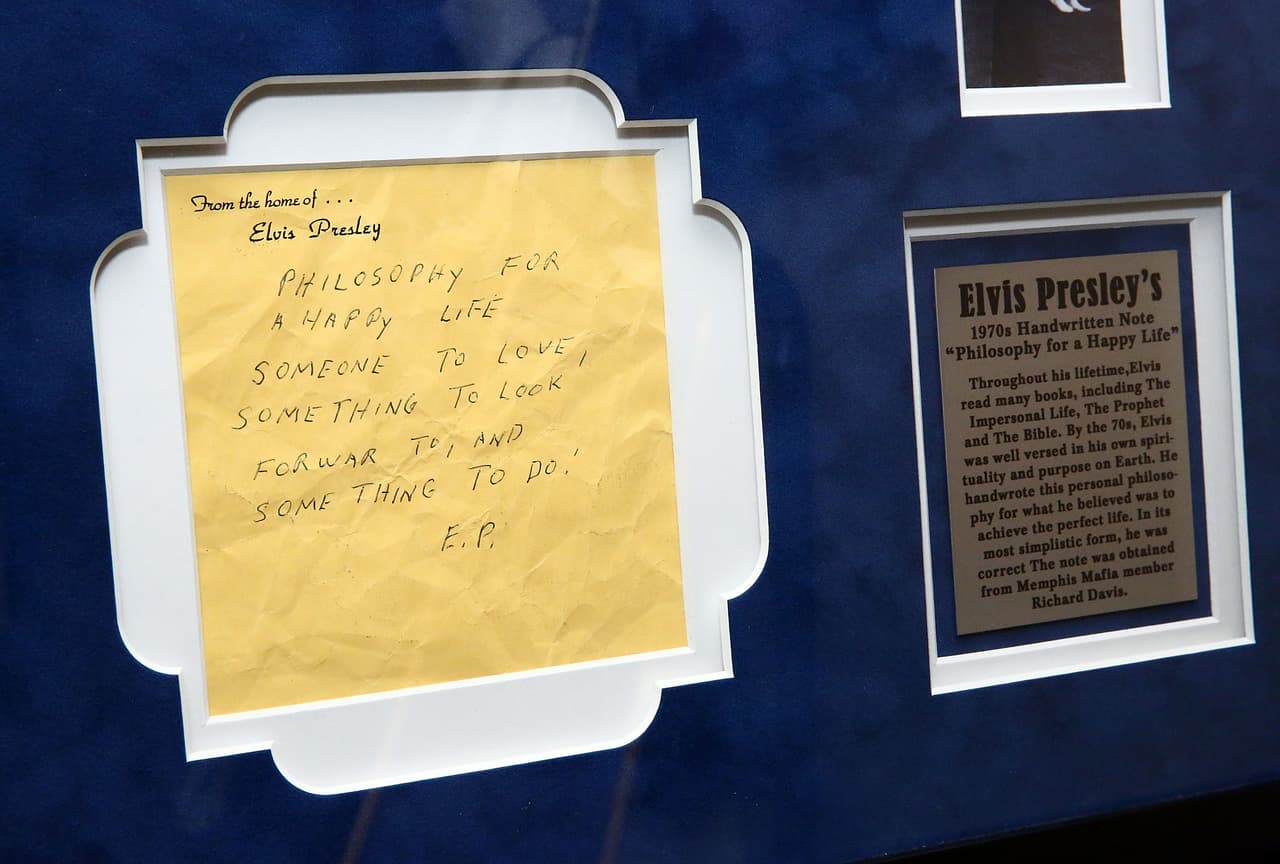 From the home of . . .
Elvis Presley
PHILOSOPHY FOR
A HAPPY LIFE
SOMEONE TO LOVE,
SOMETHING TO LOOK
FORWAR TO, AND
SOME THING TO DO!
E.P.
Elvis Presley's
1970s Handwritten Note
“Philosophy for a Happy Life”
Throughout his lifetime,Elvis
read many books, including The
Impersonal Life, The Prophet
and The Bible. By the 70s, Elvis
was well versed in his own spiri-
tuality and purpose on Earth. He
handwrote this personal philoso-
phy for what he believed was to
achieve the perfect life. In its
most simplistic form, he was
correct The note was obtained
from Memphis Mafia member
Richard Davis.